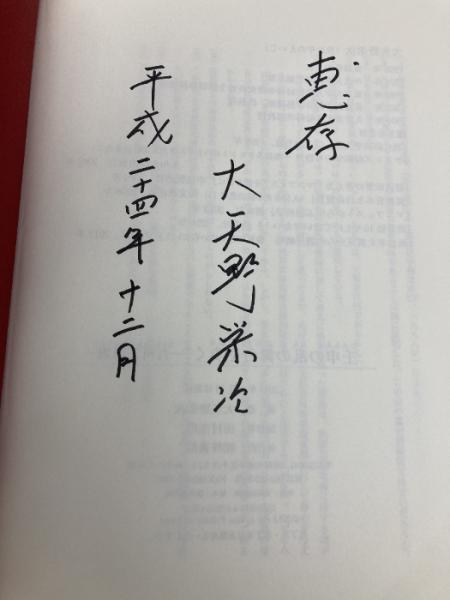 恵存
大天野栄次
平成二十四年十二月